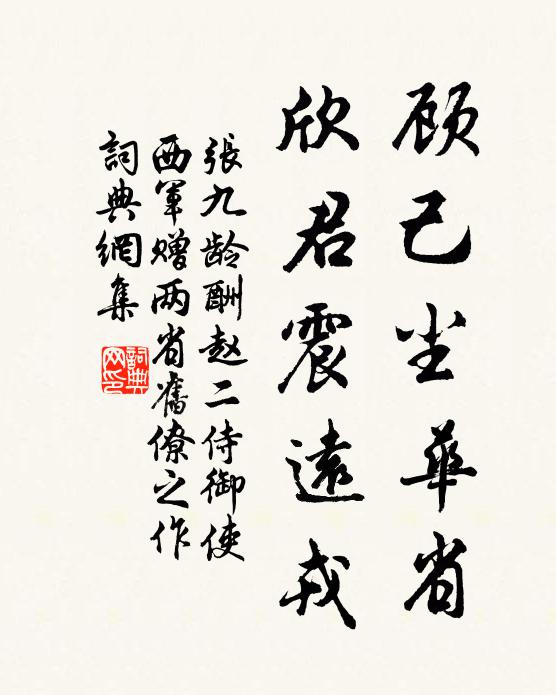 顾己尘華省
欣君震遠戎
張九龄酬赵二侍御使
西軍赠两省舊僚之作
詞典網集
詞典网印